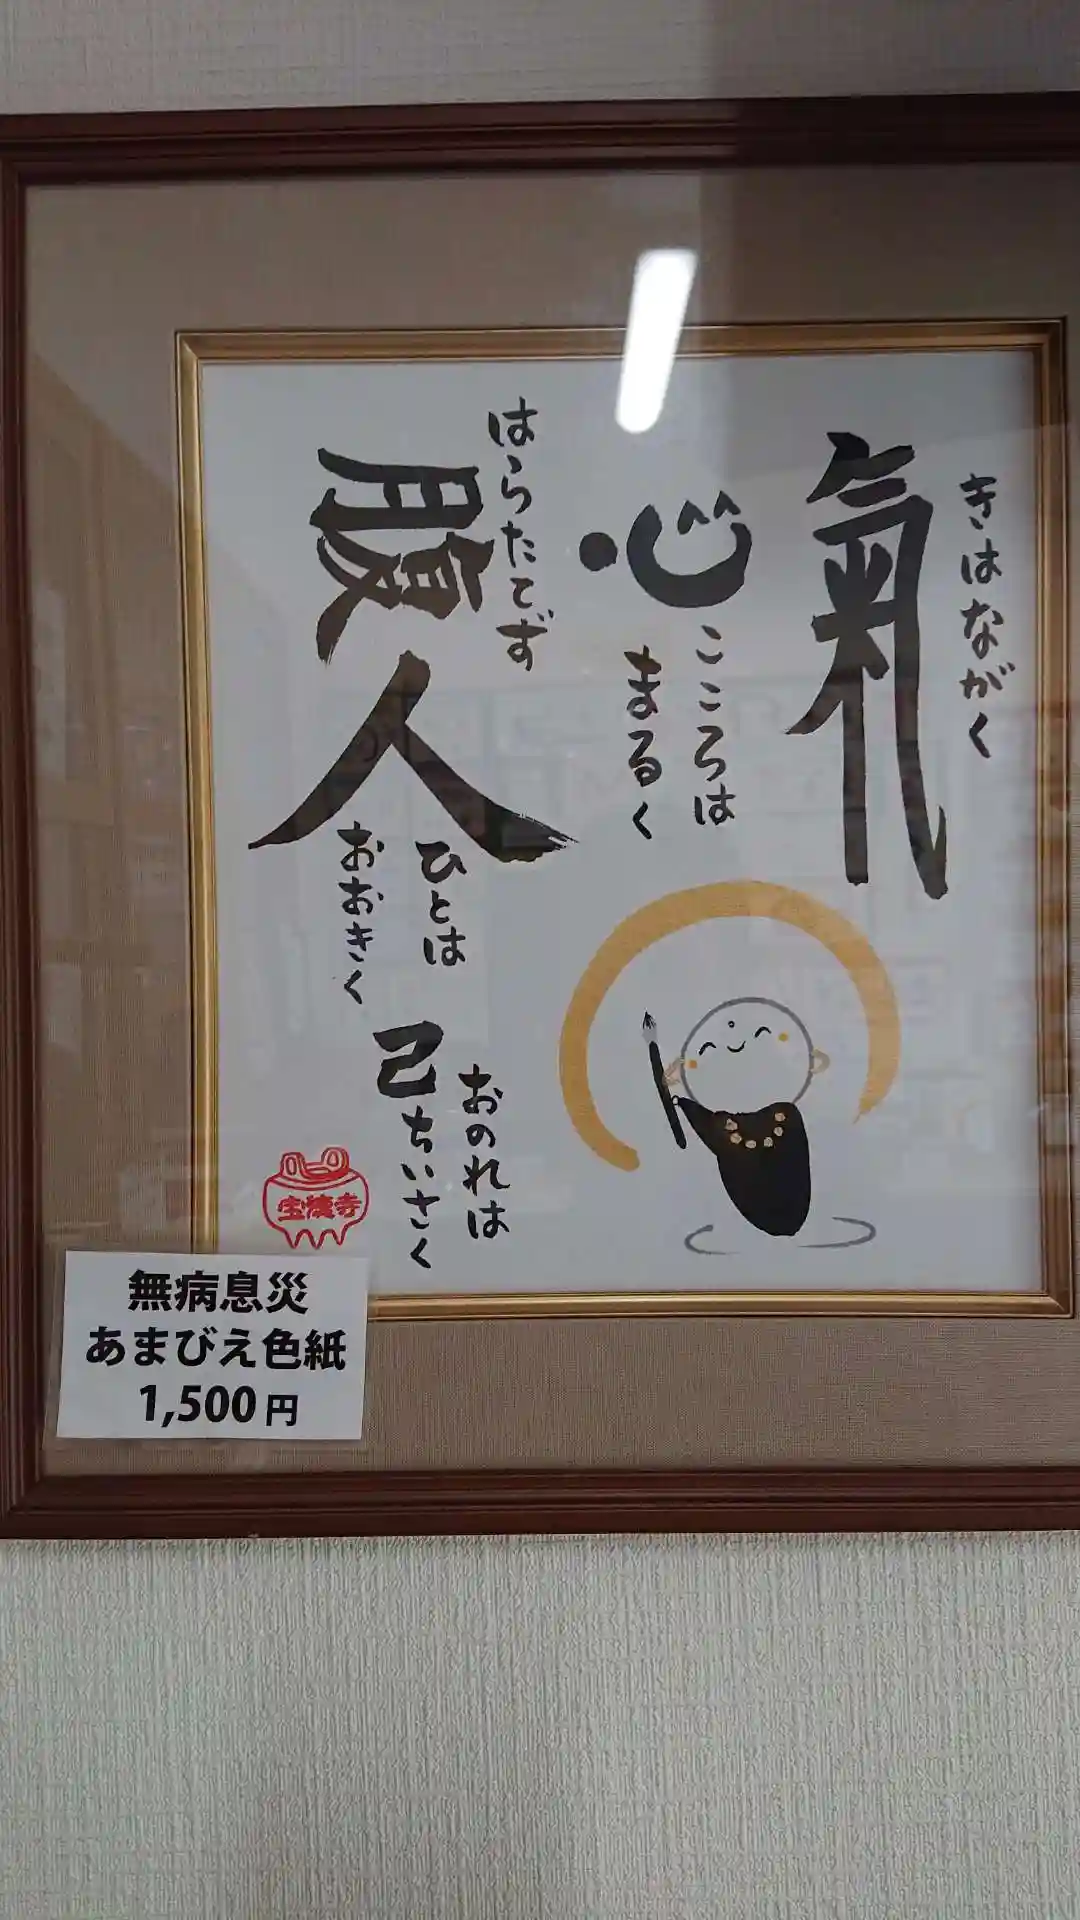 氣
きはながく
心
こころは
まるく
腹
はらたてず
人
ひとは
おおきく
己
おのれは
ちいさく
宝積寺
無病息災
あまびえ色紙
1,500円